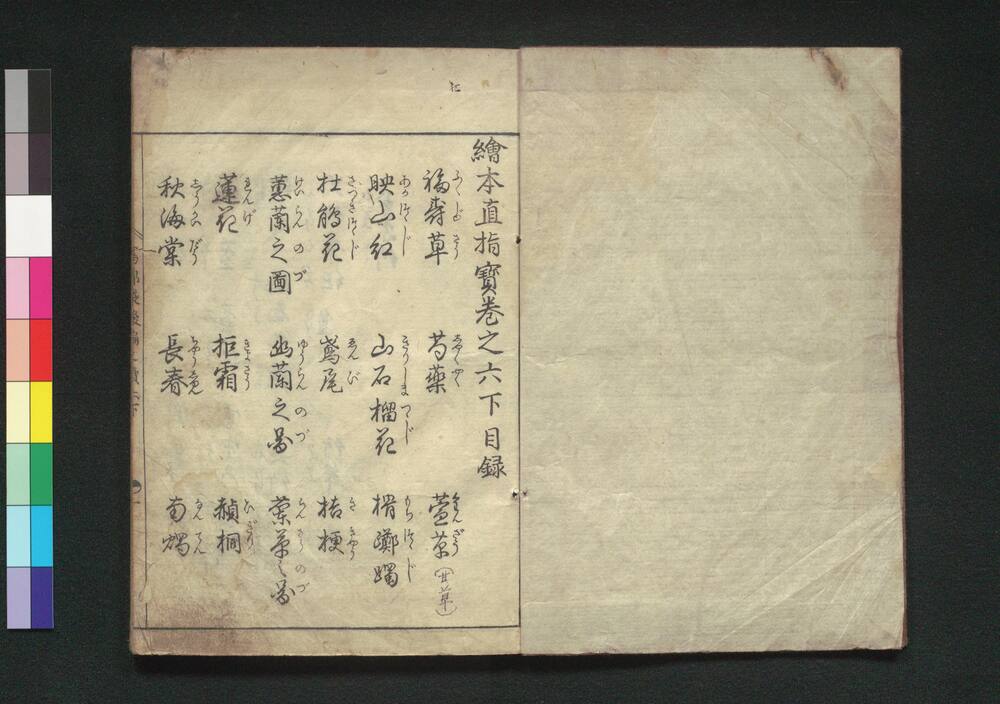 繪本直指寳巻之六下目録
福壽草 ふくじゆさう
芍藥 しやくやく
萱草 くんざう (甘草)
映山紅 あかつゝじ
山石榴花 きりしまつゝじ
榾躑躅 もちつゝじ
杜鵑花 さつきつゝじ
鳶尾 ゑんび
桔梗 きゝやう
蕙蘭之圖 けいらんのづ
幽蘭之圖 ゆうらんのづ
葉蘭之圖
蓮花 れんげ
拒霜 きよさう
赬桐 ひぎり
秋海棠 しうかいだう
長春 ちやうしゆん
南燭 なんてん